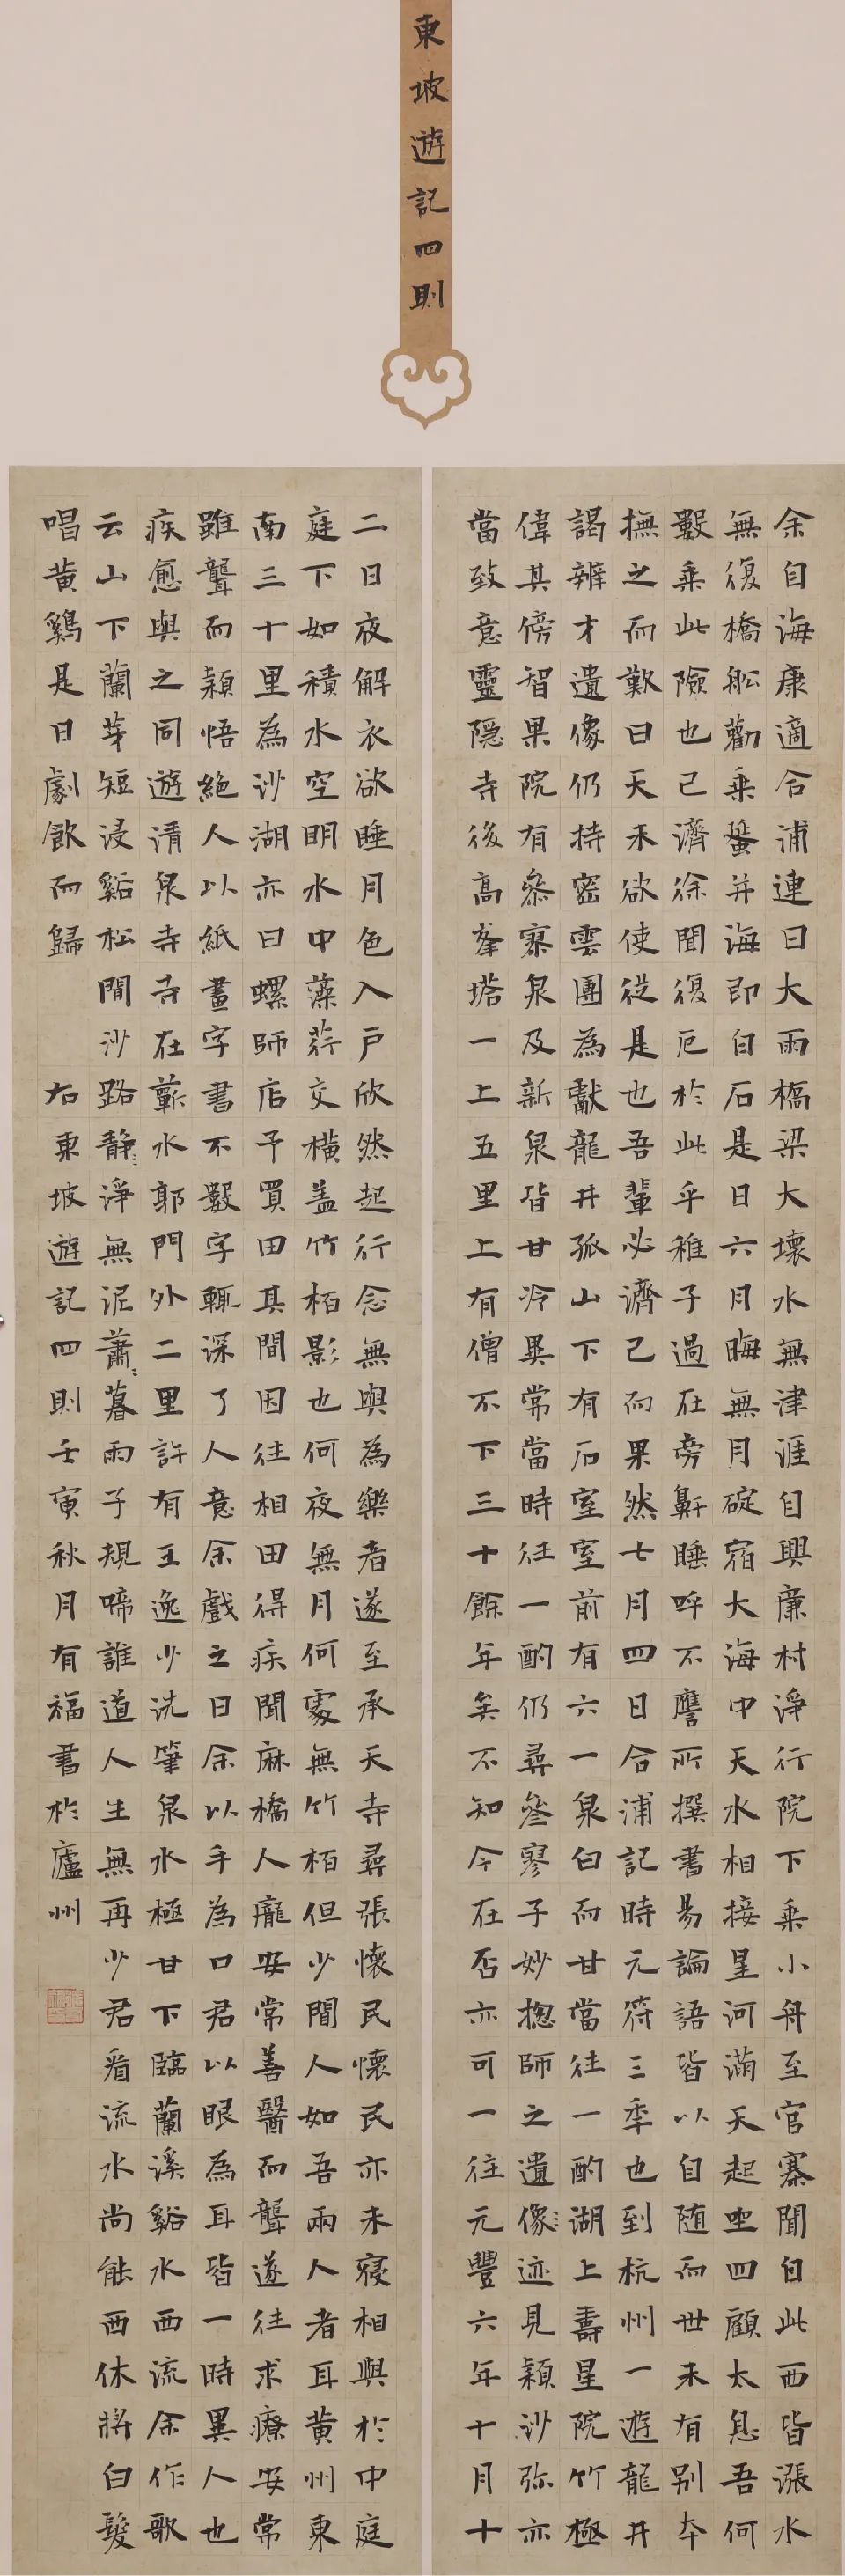 東坡遊記四則
余自海康適合浦連日大雨橋梁大壞水無津涯自興廉村淨行院下乘小舟至官寨聞自此西皆漲水
無復橋舩勸乘蜑并海即白石是日六月晦無月碇宿大海中天水相接星河滿天起坐四顧太息吾何
數乘此險也已濟徐聞復厄於此乎稚子過在旁鼾睡呼不應所撰書易論語皆以自随而世未有别本
撫之而歎曰天未欲使從是也吾輩必濟已而果然七月四日合浦記時元符三年也到杭州一遊龍井
謁辨才遺像仍持密雲團為獻龍井孤山下有石室室前有六一泉白而甘當往一酌湖上壽星院竹極
偉其傍智果院有參寥泉及新泉皆甘冷異常當時往一酌仍尋參寥子妙揔師之遺像〻迹見穎沙弥亦
當致意靈隱寺後高峯塔一上五里上有僧不下三十餘年矣不知今在否亦可一往元豐六年十月十
二日夜解衣欲睡月色入戶欣然起行念無與為樂者遂至承天寺尋張懷民懷民亦未寢相與於中庭
庭下如積水空明水中藻荇交橫蓋竹栢影也何夜無月何處無竹栢但少閒人如吾兩人者耳黃州東
南三十里為沙湖亦曰螺師店予買田其間因往相田得疾聞麻橋人龐安常善醫而聾遂往求療安常
雖聾而穎悟絕人以紙畫字書不數字輒深了人意余戲之曰余以手為口君以眼為耳皆一時異人也
疾愈與之同遊清泉寺寺在蘄水郭門外二里許有王逸少洗筆泉水極甘下臨蘭溪谿水西流余作歌
云山下蘭芽短浸谿松間沙路靜〻淨無泥蕭〻暮雨子規啼誰道人生無再少君看流水尚能西休將白髮
唱黃鷄是日劇飲而歸
右東坡遊記四則壬寅秋月有福書於廬州